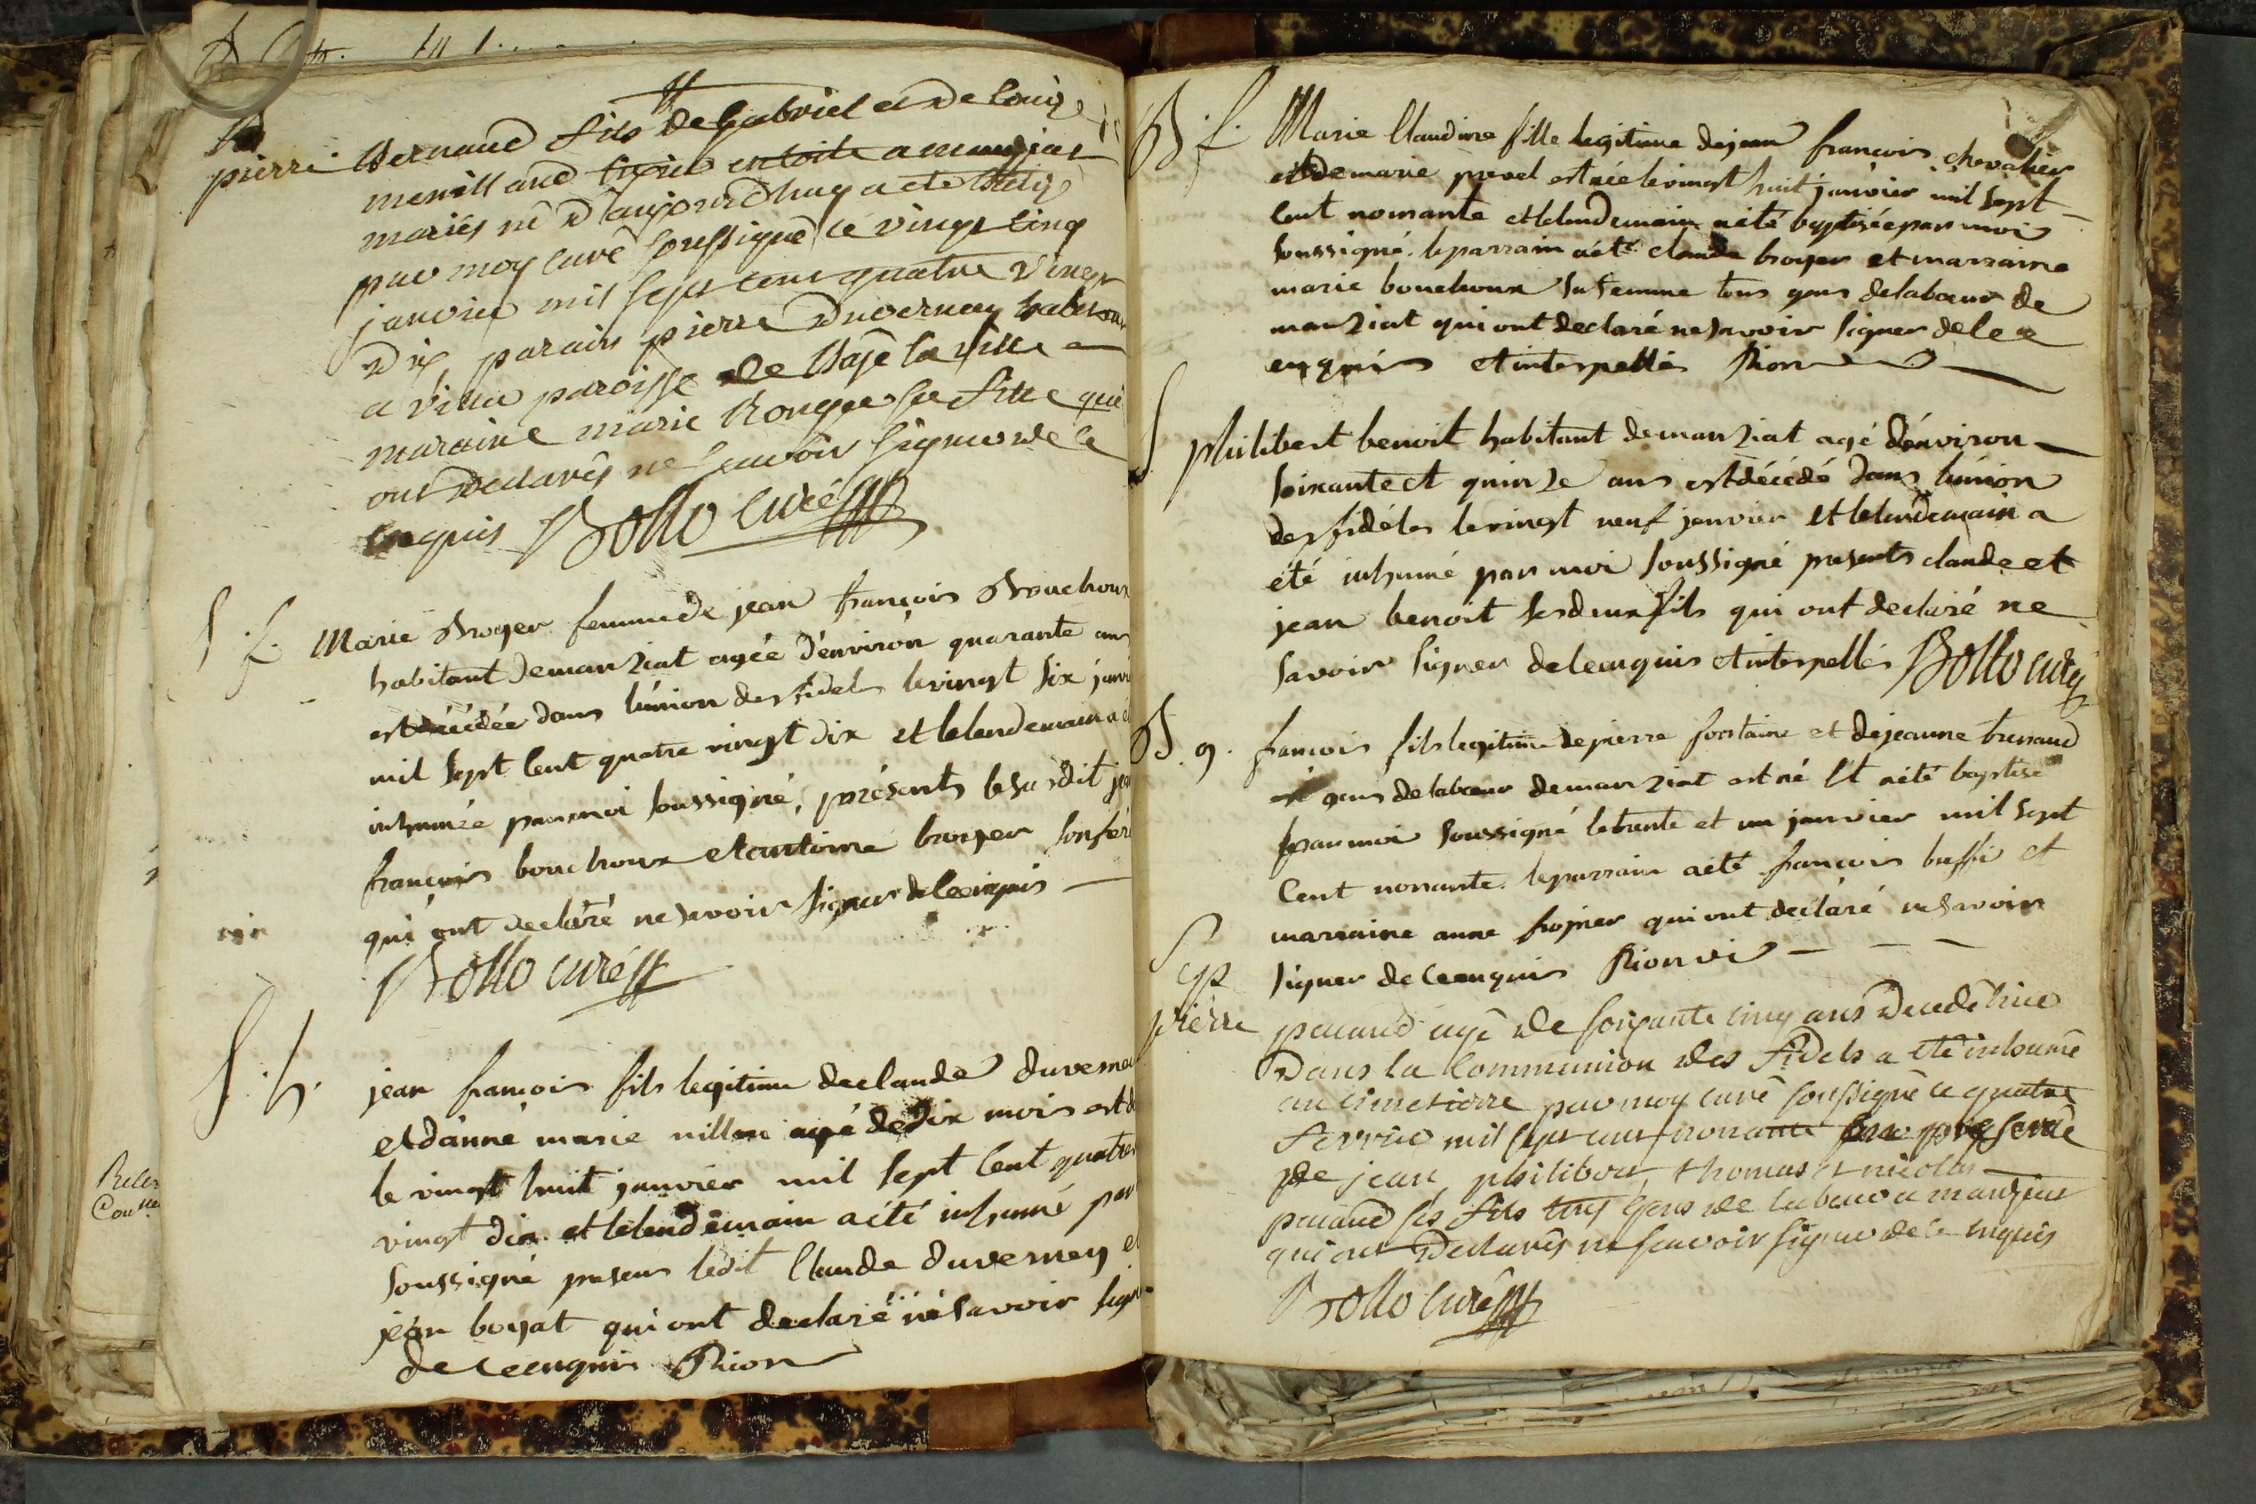 B
pierre Bernaud fils de gabriel et de Louise
mevillaud tissier en toile a manziat
mariés né d'aujourd'huy a eté batizé
par moy curé soussigné le vingt cinq
janvier mil sept cent quatre vingt
dix parain pierre Duvernay habitant
a ville paroisse de Bagé la ville
maraine marie Rongee sa fille qui
ont Declarés ne scavoir signer de ce
enquis Bollo curé
S. f. Marie Broyer femme de jean françois Bouchoux
habitant de manziat agée d'environ quarante ans
est décédée dans l'union des fidels le vingt six janvi
mil sept cent quatre vingt dix et le lendemain a é
inhumée par moi soussigné, présents le susdit jea
françois bouchoux et antoine broyer son frère
qui ont declaré ne savoir signer de ce enquis
Bollo curé
S. h. jean françois fils legitime de claude duverney
et d'anne marie millon agé de dix mois est dé
le vingt huit janvier mil sept cent quatre
vingt dix et le lendemain a été inhumé par
soussigné presens ledit Claude duverney et
jean boyat qui ont declaré ne savoir signe
de ce enquis Rion
B. f. Marie Claudine fille legitime de jean françois chevalier
et de marie prevel est née le vingt huit janvier mil sept
cent nonante et le lendemain a été baptisée par moi
soussigné. le parrain a été claude broyer et marraine
marie bouchoux sa femme tous gens de labeur de
manziat qui ont declaré ne savoir signer de ce
enquis et interpellés Rion
S. philibert benoit habitant de manziat agé d'environ
soixante et quinze ans est décédé dans l'union
des fidéles le vingt neuf janvier et le lendemain a
été inhumé par moi soussigné presents claude et
jean benoit ses deux fils qui ont declaré ne
savoir signer de ce enquis et interpellés Bollo curé
B. g. françois fils legitime de pierre fontaine et de jeanne brunaud
gens de labeur de manziat est né et a été baptisé
par moi soussigné le trente et un janvier mil sept
cent nonante. le parrain a été françois buffi et
marraine anne frojner qui ont declaré ne savoir
signer de ce enquis Rion vi
S gp
pierre penaud agé de soixante cinq ans Decedé hier
Dans la Communion des fidels a eté inhumé
au cimetiere par moy curé soussigné ce quatre
fevrier mil sept cent nonante en presence
de jean, philibert, thomas et nicolas
penaud ses fils tous gens de labeur a manziat
qui ont Declarés ne scavoir signer de ce enquis
Bollo curé